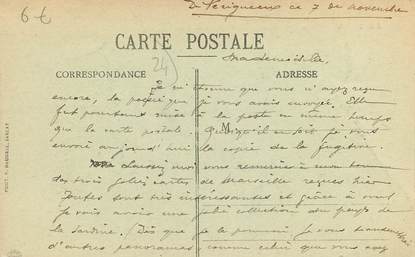 6 €
De Périgueux ce 7 de novembre
CARTE POSTALE
24
Mademoiselle,
CORRESPONDANCE
ADRESSE
Je m'étonne que vous n'ayez reçu
encore, la poésie que je vous avais envoyée. Elle
fut pourtant mise à la poste en même temps
que la carte postale. M Quoiqu'il en soit je vous
envoie aujourd'hui la copie de la fugitive.
Laissez moi vous remercier
des trois jolies cartes de Marseille reçues hier.
Toutes sont très intéressantes et grâce à vous
je vais avoir une jolie collection du pays de
la Sardine. Dès que je le pourrai, je vous
d'autres panoramas comme celui que vous avez